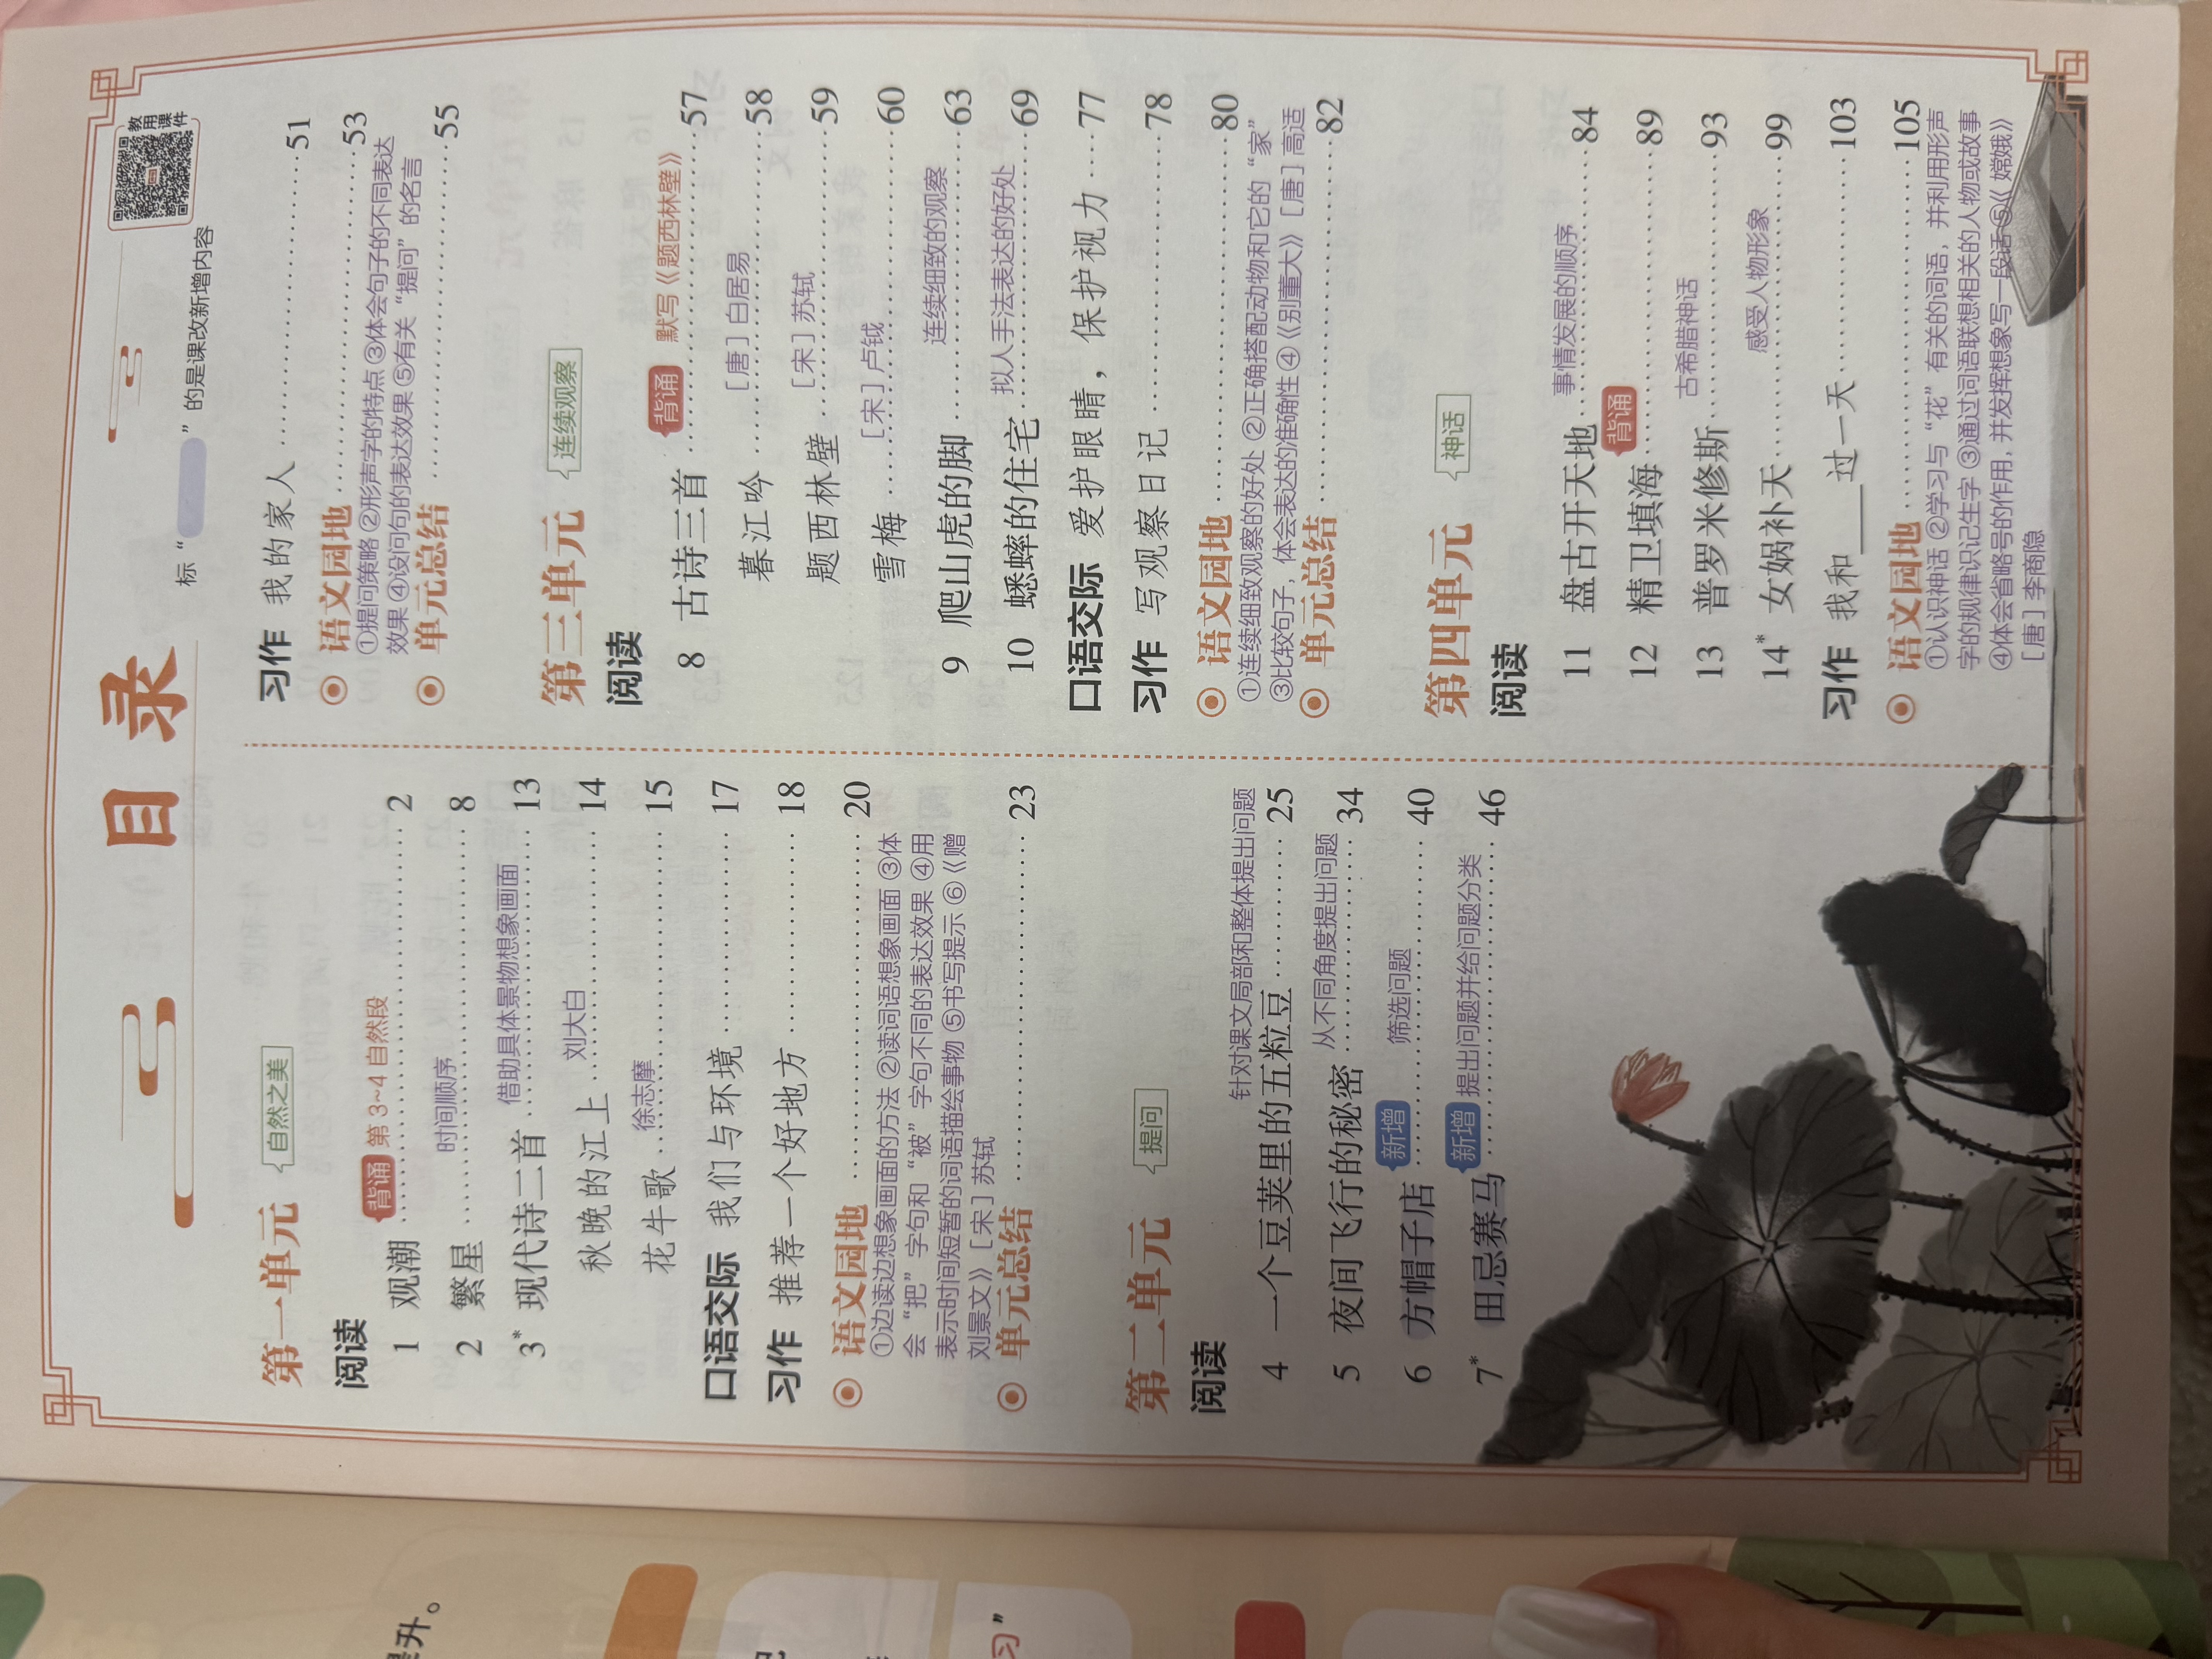 目录
教用课件
标“ ”的是课改新增内容
第一单元 自然之美
阅读
背诵 第3~4自然段
1 观潮 2
时间顺序
2 繁星 8
借助具体景物想象画面
3* 现代诗二首 13
刘大白
秋晚的江上 14
徐志摩
花牛歌 15
口语交际 我们与环境 17
习作 推荐一个好地方 18
语文园地 20
①边读边想象画面的方法 ②读词语想象画面 ③体
会“把”字句和“被”字句不同的表达效果 ④用
表示时间短暂的词语描绘事物 ⑤书写提示 ⑥《赠
刘景文》[宋]苏轼
单元总结 23
第二单元 提问
阅读
针对课文局部和整体提出问题
4 一个豆荚里的五粒豆 25
从不同角度提出问题
5 夜间飞行的秘密 34
新增 筛选问题
6 方帽子店 40
新增 提出问题并给问题分类
7* 田忌赛马 46
习作 我的家人 51
语文园地 53
①提问策略 ②形声字的特点 ③体会句子的不同表达
效果 ④设问句的表达效果 ⑤有关“提问”的名言
单元总结 55
第三单元 连续观察
阅读
背诵 默写《题西林壁》
8 古诗三首 57
[唐]白居易
暮江吟 58
[宋]苏轼
题西林壁 59
[宋]卢钺
雪梅 60
连续细致的观察
9 爬山虎的脚 63
拟人手法表达的好处
10 蟋蟀的住宅 69
口语交际 爱护眼睛，保护视力 77
习作 写观察日记 78
语文园地 80
①连续细致观察的好处 ②正确搭配动物和它的“家”
③比较句子，体会表达的准确性 ④《别董大》[唐]高适
单元总结 82
第四单元 神话
阅读
事情发展的顺序
11 盘古开天地 84
背诵
12 精卫填海 89
古希腊神话
13 普罗米修斯 93
感受人物形象
14* 女娲补天 99
习作 我和____过一天 103
语文园地 105
①认识神话 ②学习与“花”有关的词语，并利用形声
字的规律识记生字 ③通过词语联想相关的人物或故事
④体会省略号的作用，并发挥想象写一段话 ⑤《嫦娥》
[唐]李商隐
升。
习”